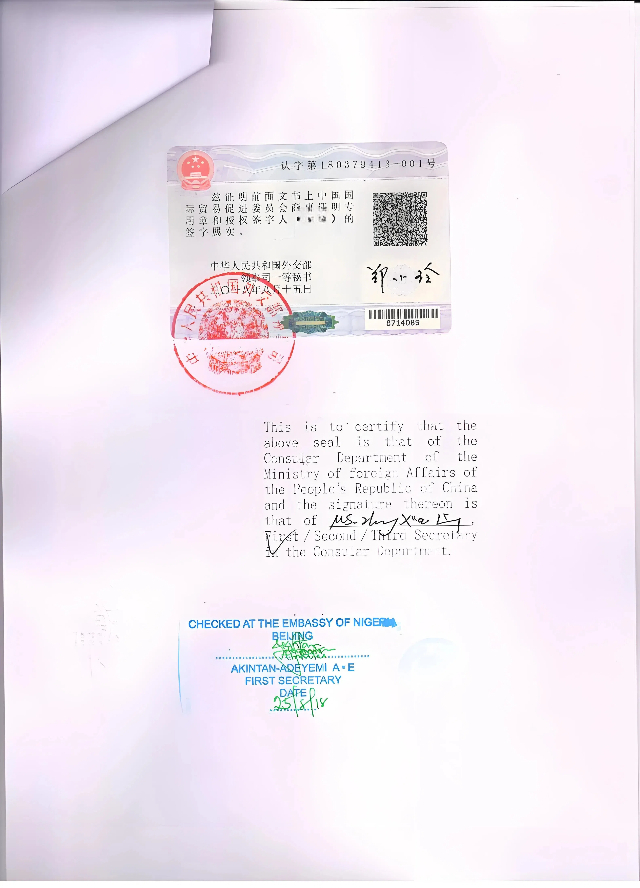 认字第180379413-001号
兹证明前面文书上中国国
际贸易促进委员会商事证明专
用章和授权签字人（）的
签字属实。
中华人民共和国外交部
领事司一等秘书
二〇一八年八月十五日
郑小玲
8714089
中华人民共和国外交部
This is to certify that the
above seal is that of the
Consular Department of the
Ministry of Foreign Affairs of
the People's Republic of China
and the signature thereon is
that of Ms.
First / Second / Third Secretary
in the Consular Department.
CHECKED AT THE EMBASSY OF NIGERIA
BEIJING
AKINTAN-ADEYEMI A-E
FIRST SECRETARY
DATE
25/8/18